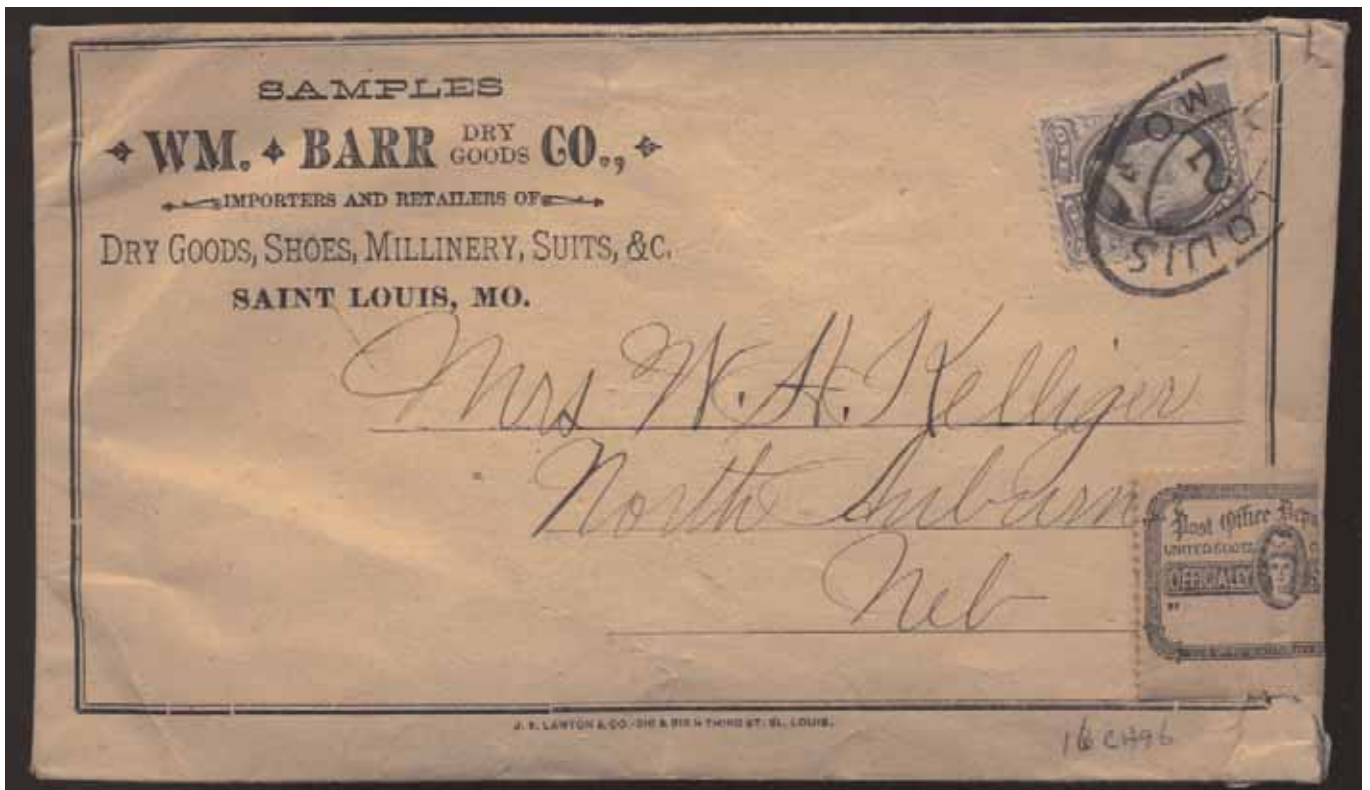 SAMPLES
WM. BARR DRY GOODS CO.,
IMPORTERS AND RETAILERS OF
DRY GOODS, SHOES, MILLINERY, SUITS, &C.
SAINT LOUIS, MO.
LOUIS MO
2
Mrs W. H. Kelliger
North Auburn
Neb
Post Office Dep
UNITED
OFFICIALLY S
BY
J. E. LAWTON & CO. THIRD ST. ST. LOUIS.